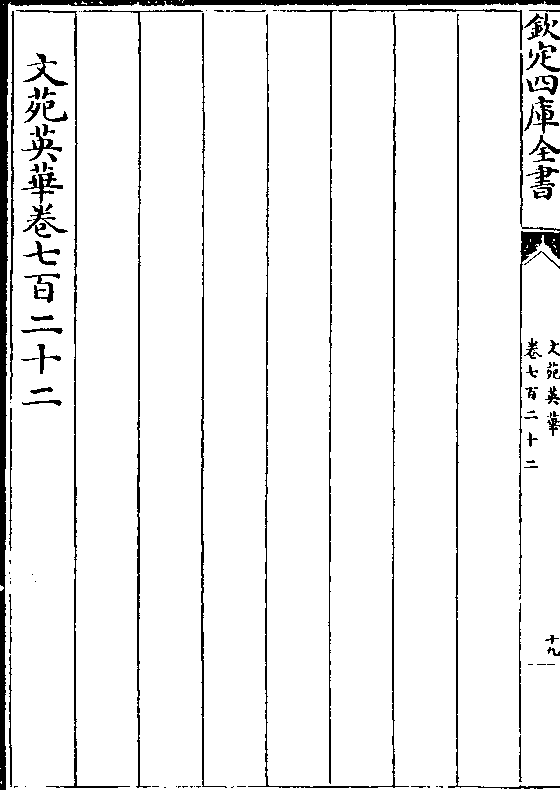 欽定四庫全書
文苑英華
卷七百二十二
十九
文苑英華卷七百二十二